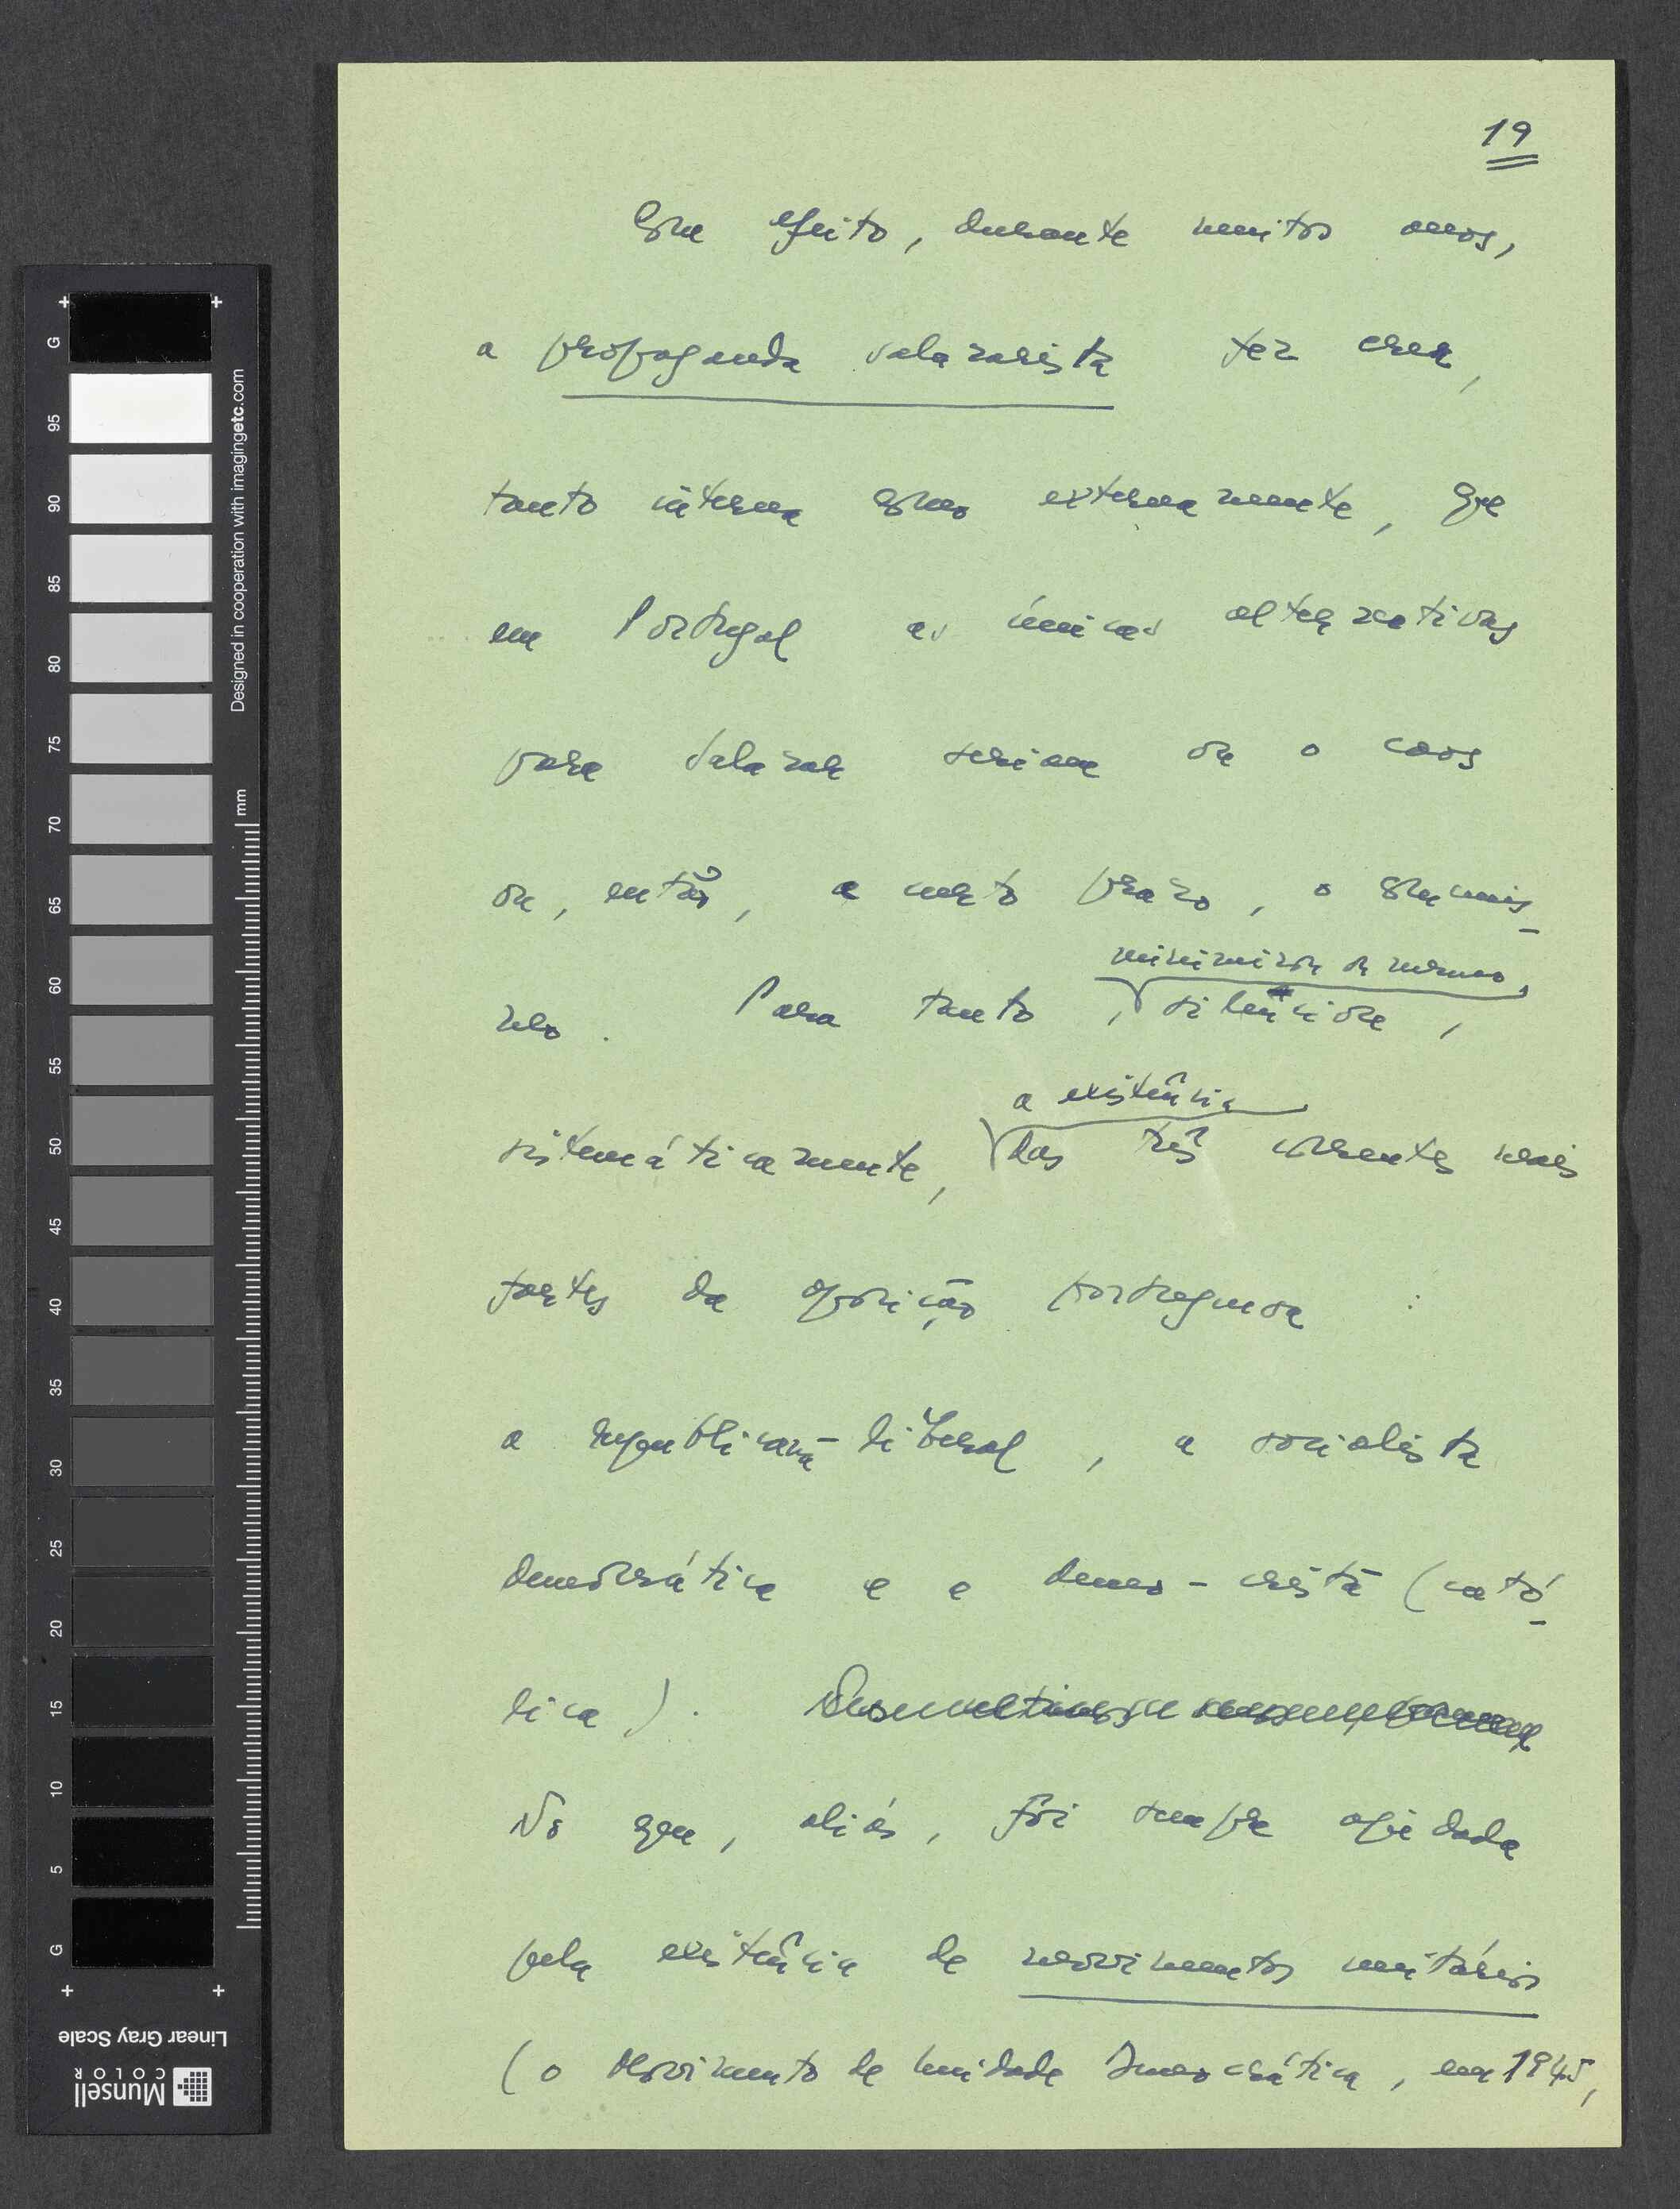 19
Com efeito, durante muitos anos,
a propaganda salazarista fez crer,
tanto interna como externamente, que
em Portugal as únicas alternativas
para Salazar seriam ou o caos
ou, então, a curto prazo, o comunis-
mo. Para tanto, silenciou,
minimizou ou mesmo
sistemáticamente, das três correntes mais
a existência
fortes da oposição portuguesa :
a republicana-liberal, a socialista
democrática e a democ-cristã (cató-
lica).
No que, aliás, foi sempre ajudada
pela existência de movimentos unitários
(o Movimento de Unidade Democrática, em 1945,
G
95
90
85
80
75
70
65
60
55
50
45
40
35
30
25
20
15
10
5
G
Designed in cooperation with imagingetc.com
mm
Linear Gray Scale
Munsell
COLOR